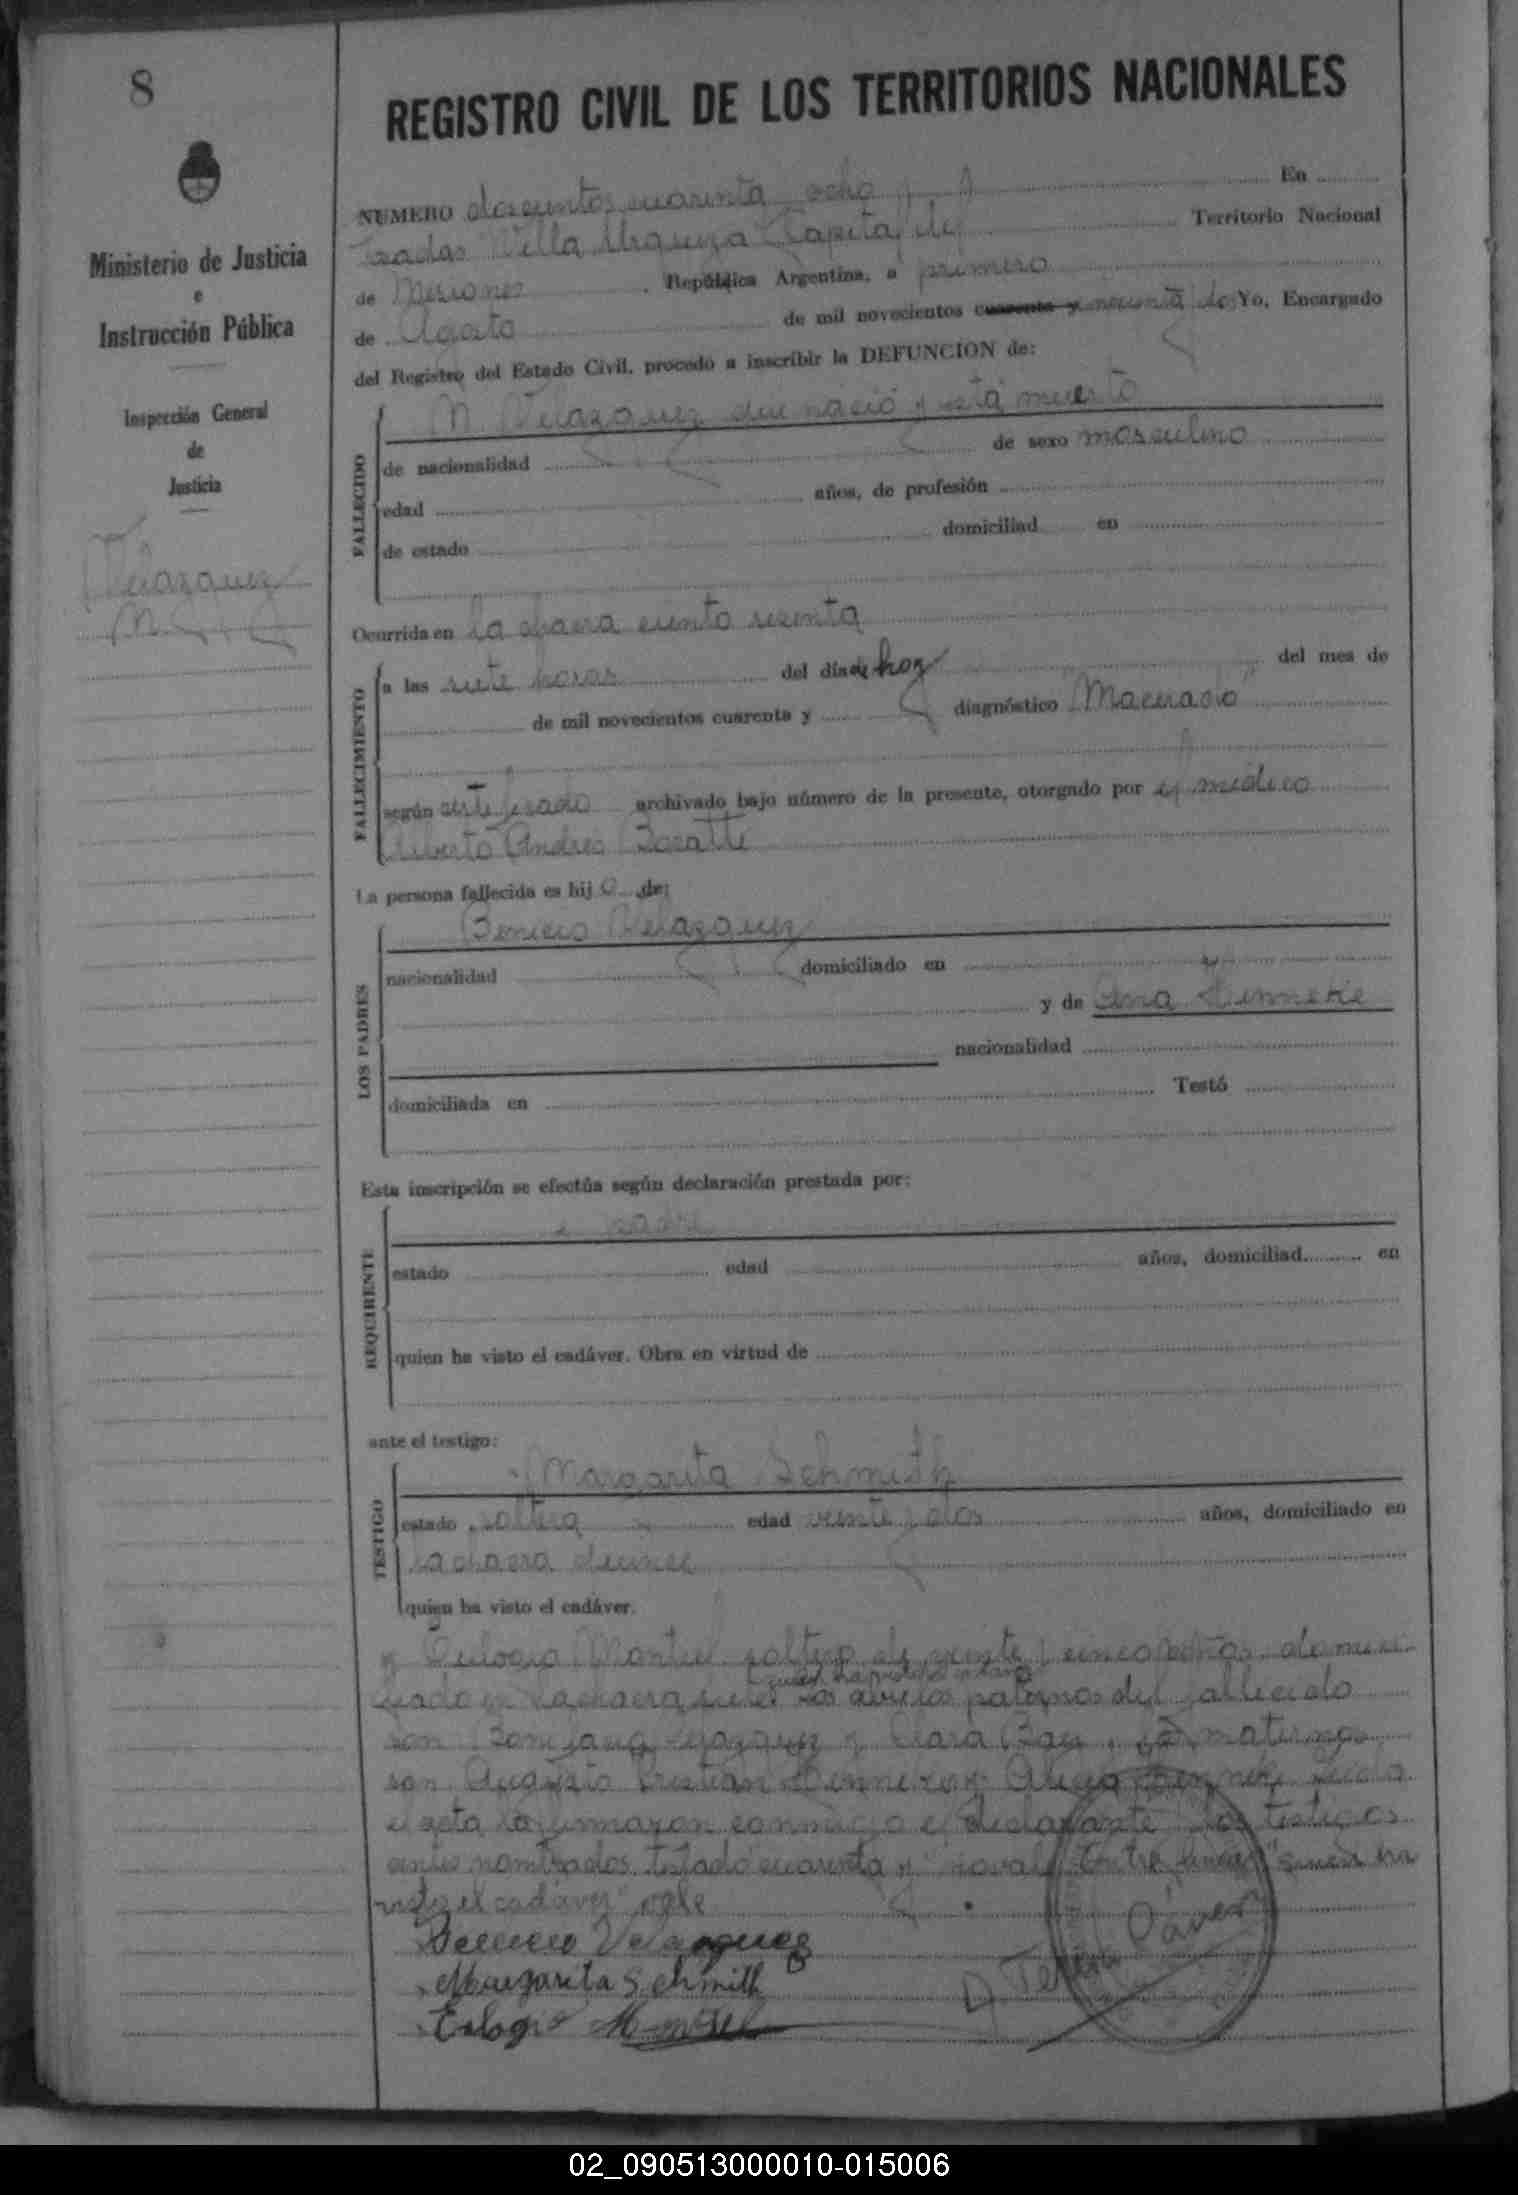 8
Ministerio de Justicia
e
Instrucción Pública
Inspección General
de
Justicia
Velazquez
N.
REGISTRO CIVIL DE LOS TERRITORIOS NACIONALES
NUMERO doscientos cuarenta ocho En
Posadas Villa Urquiza Capital del Territorio Nacional
de Misiones, República Argentina, a primero
de Agosto de mil novecientos cuarenta y cincuenta dos Yo, Encargado
del Registro del Estado Civil, procedo a inscribir la DEFUNCION de:
FALLECIDO
N. Velazquez que nació y está muerto
de nacionalidad de sexo masculino
edad años, de profesión
de estado domiciliad en
Ocurrida en la chacra ciento sesenta
FALLECIMIENTO
a las siete horas del dia de hoy del mes de
de mil novecientos cuarenta y diagnóstico "Macerado"
según certificado archivado bajo número de la presente, otorgado por el médico
Alberto Andres
La persona fallecida es hijo de:
LOS PADRES
Benicio Velazquez
nacionalidad domiciliado en
y de Ana Henneke
nacionalidad
domiciliada en Testó
Esta inscripción se efectúa según declaración prestada por:
REQUIRENTE
el padre
estado edad años, domiciliad en
quien ha visto el cadáver. Obra en virtud de
ante el testigo:
TESTIGO
Margarita Schmith
estado soltera edad veinte y dos años, domiciliado en
la chacra
quien ha visto el cadáver.
y Eulogio Montiel soltero de veinte y cinco años domici-
quien ha visto el cadáver
liado en la chacra los abuelos paternos del fallecido
son Velazquez y Clara los maternos
son Augusto Cristian Henneke y Henneke Leida
el acta la firmaron conmigo el declarante y los testigos
antes nombrados. Testado "cuarenta y" no vale Entre lineas "quien ha
visto el cadaver" vale
Benicio Velazquez
Margarita Schmith
Eulogio Montiel
02_090513000010-015006